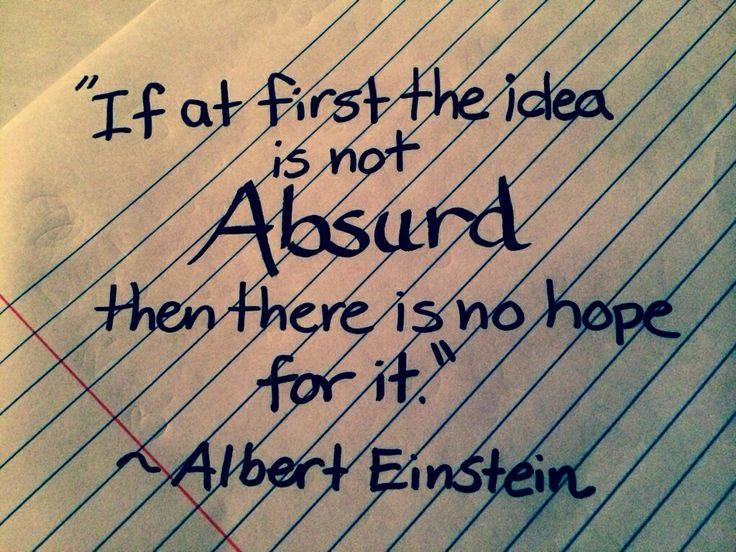 "If at first the idea
is not
Absurd
then there is no hope
for it."
~ Albert Einstein